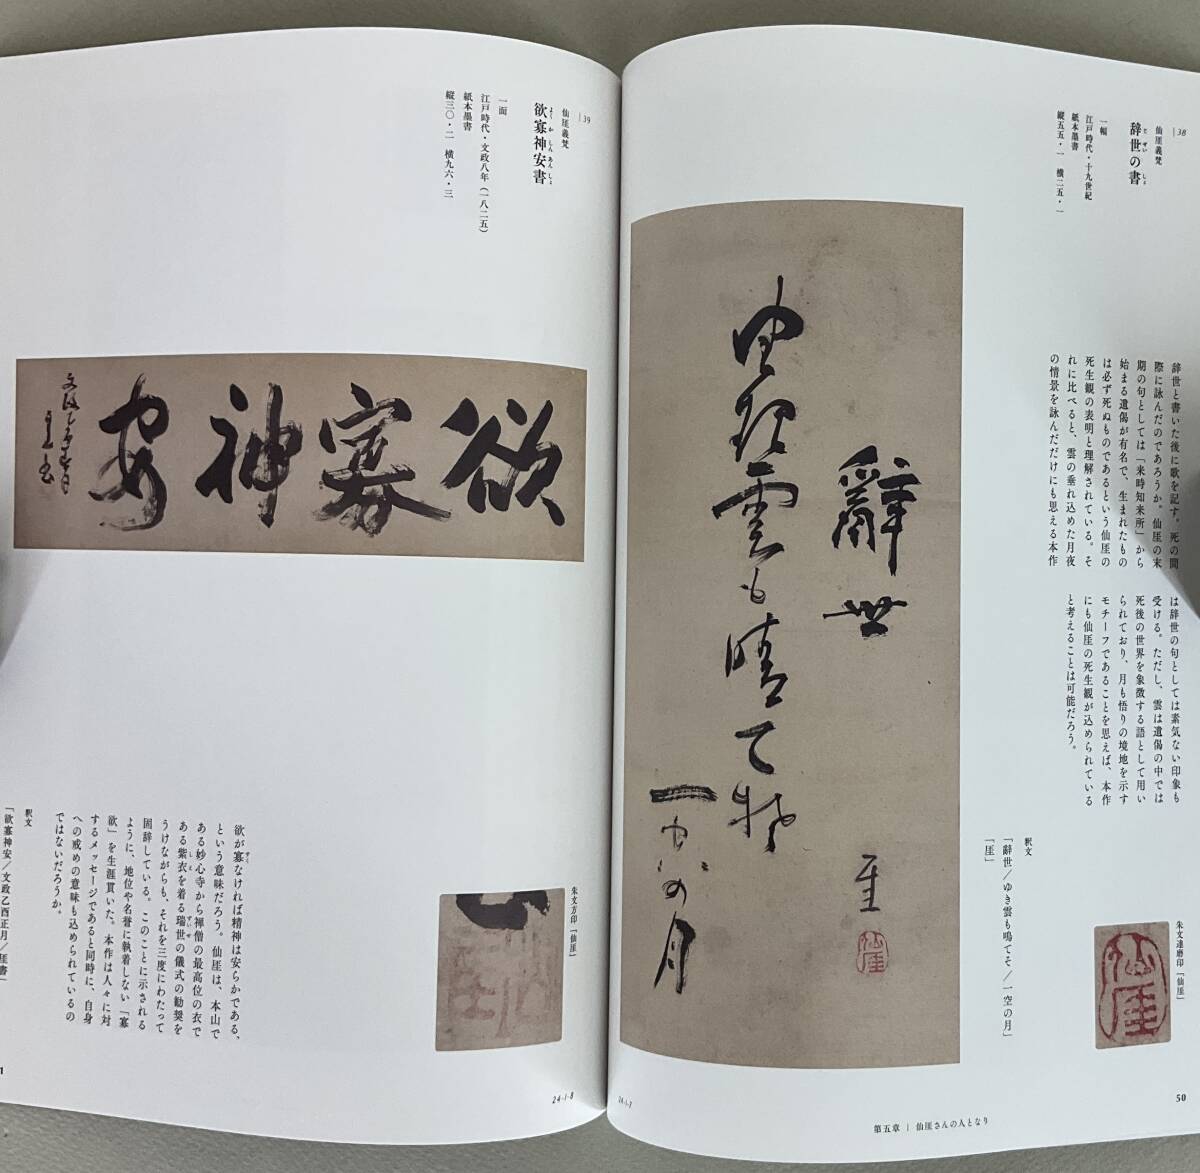 38
仙厓義梵
辞世の書
じせいのしょ
一幅
江戸時代・十九世紀
紙本墨書
縦五五・一　横二五・一
辞世と書いた後に歌を記す。死の間
際に詠んだのであろうか。仙厓の末
期の句としては「来時知来所」から
始まる遺偈が有名で、生まれたもの
は必ず死ぬものであるという仙厓の
死生観の表明と理解されている。そ
れに比べると、雲の垂れ込めた月夜
の情景を詠んだだけにも思える本作
は辞世の句としては素気ない印象も
受ける。ただし、雲は遺偈の中では
死後の世界を象徴する語として用い
られており、月も悟りの境地を示す
モチーフであることを思えば、本作
にも仙厓の死生観が込められている
と考えることは可能だろう。
釈文
「辭世／ゆき雲も鳴てそ／一空の月」
「厓」
朱文達磨印「仙厓」
辭世
厓
仙厓
50
第五章｜仙厓さんの人となり
24-1-7
39
仙厓義梵
欲寡神安書
よくかしんあんしょ
一面
江戸時代・文政八年（一八二五）
紙本墨書
縦三〇・二　横九六・三
欲寡神安
欲が寡なければ精神は安らかである、
という意味だろう。仙厓は、本山で
ある妙心寺から禅僧の最高位の衣で
ある紫衣を着る瑞世の儀式の勧奨を
うけながらも、それを三度にわたって
固辞している。このことに示される
ように、地位や名誉に執着しない「寡
欲」を生涯貫いた。本作は人々に対
するメッセージであると同時に、自身
への戒めの意味も込められているの
ではないだろうか。
釈文
「欲寡神安／文政乙酉正月／厓書」
朱文方印「仙厓」
24-1-8